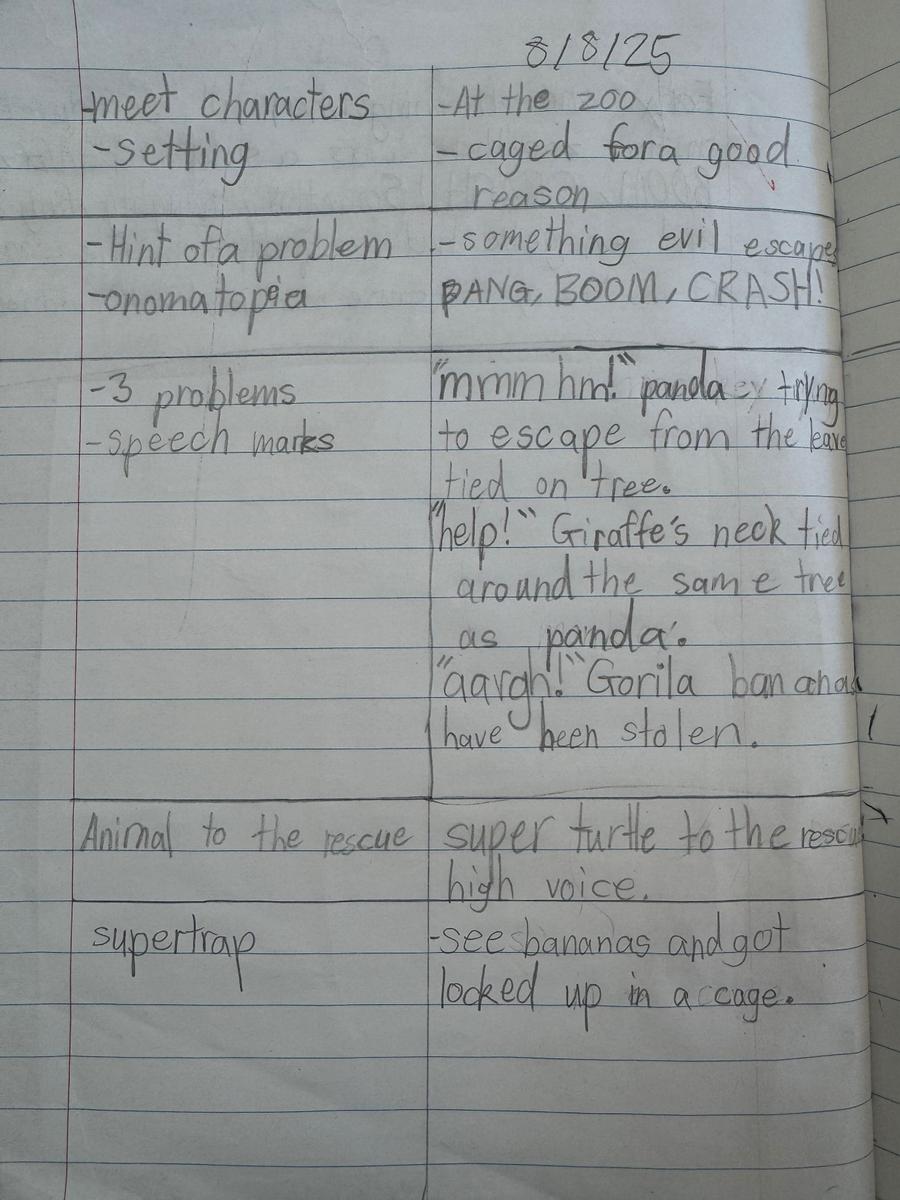 8/8/25
-meet characters
-setting
-At the zoo
-caged for a good
reason
-Hint of a problem
-onomatopeia
-something evil escapes
BANG, BOOM, CRASH!
-3 problems
-speech marks
"mmm hm!" panda trying
to escape from the leave
tied on tree.
"help!" Giraffe's neck tied
around the same tree
as panda.
"aargh!" Gorila bananas
have been stolen.
Animal to the rescue
super turtle to the rescue
high voice.
supertrap
-see bananas and got
locked up in a cage.